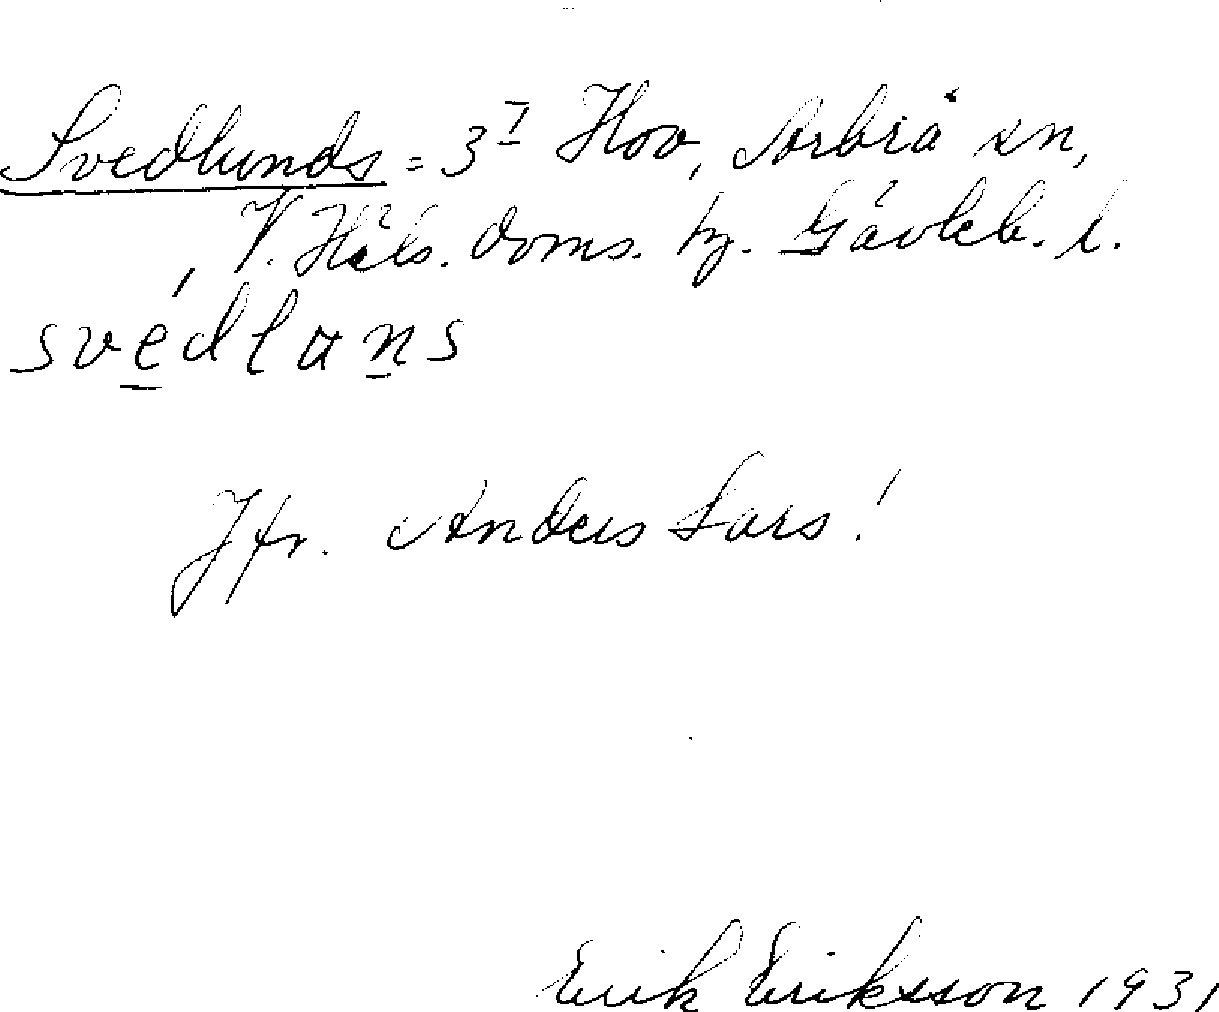 Svedlunds = 3^I Hov, Arbrå sn,
V. Häls. doms. hg. Gävleb. l.
, svédlans
Jfr. Anders Lars!
Erik Eriksson 1931